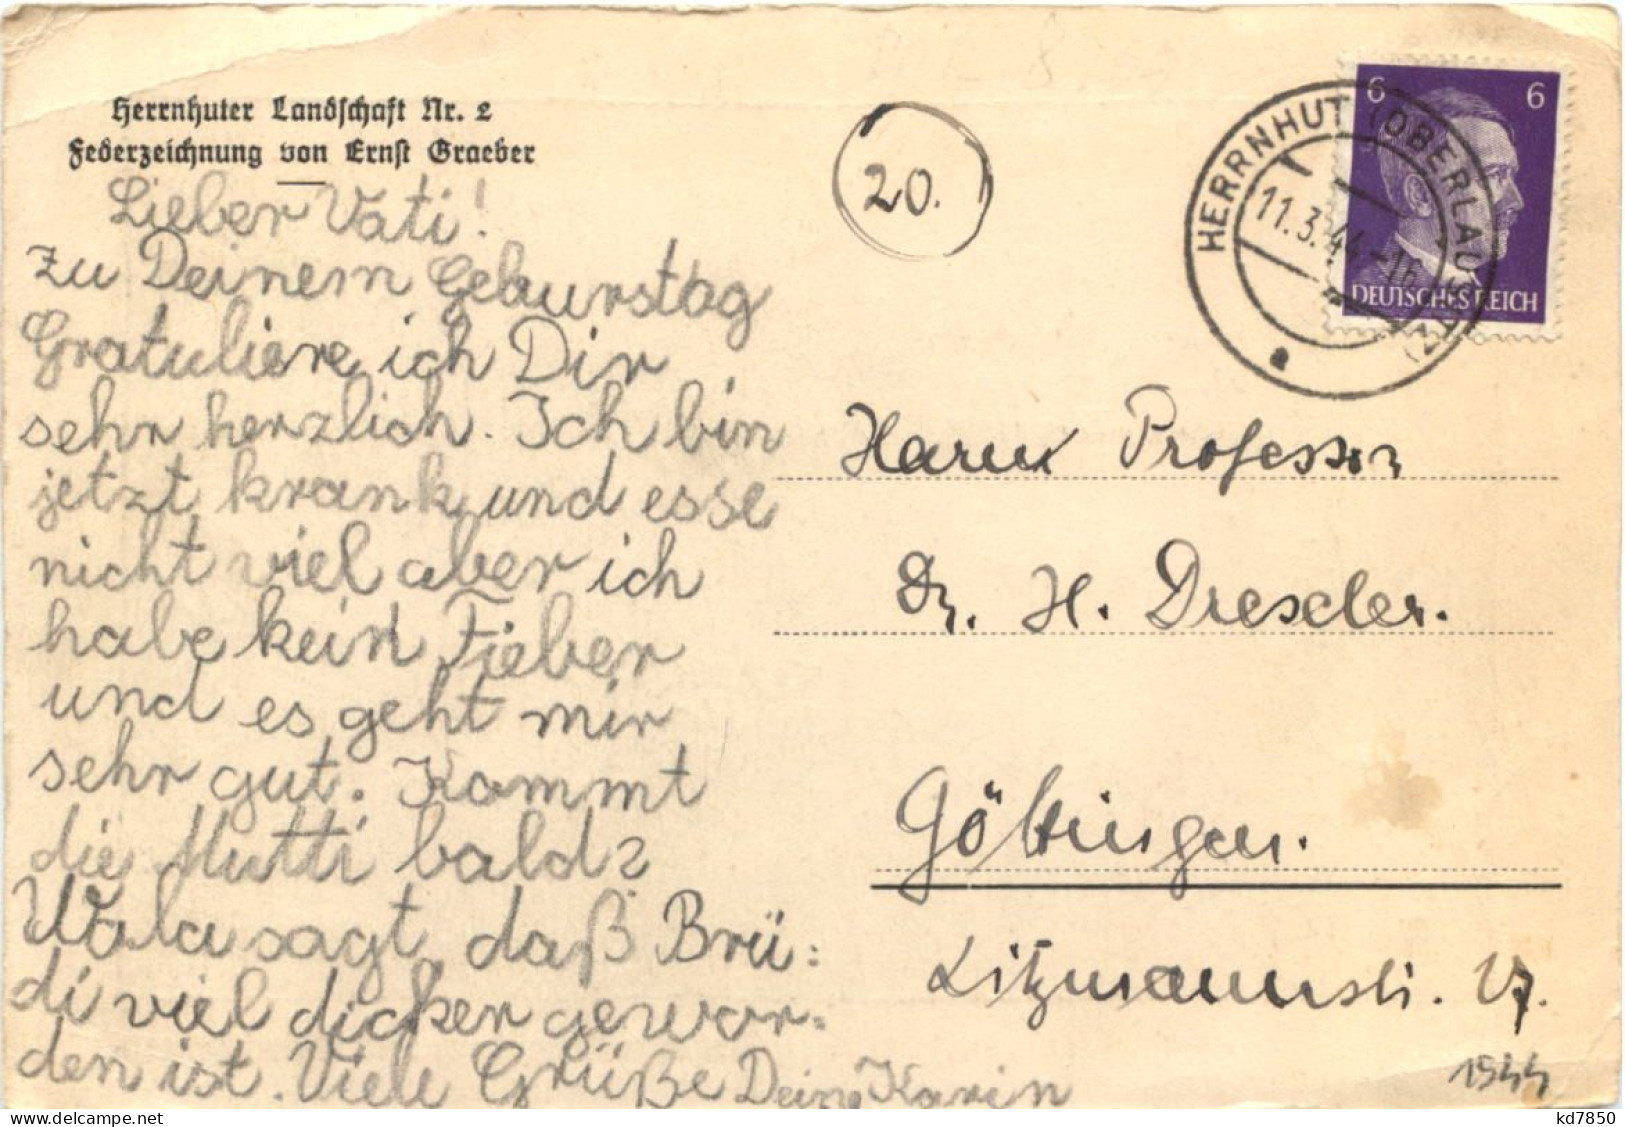 Herrnhuter Landschaft Nr. 2
Federzeichnung von Ernst Graeber
Lieber Vati!
zu Deinem Geburstag
Gratuliere ich Dir
sehr herzlich. Ich bin
jetzt krank und esse
nicht viel aber ich
habe kein Fieber
und es geht mir
sehr gut. Kommt
die Mutti bald?
Wala sagt, daß Brü:
di viel dicker gewor:
den ist. Viele Grüße Deine Karin
20.
HERRNHUT (OBERLAUSITZ)
11.3.44.-16
a
6 6
DEUTSCHES REICH
Herrn Professor
Dr. H. Drescler.
Göttingen.
Litzmannstr. 17.
1944
kd7850